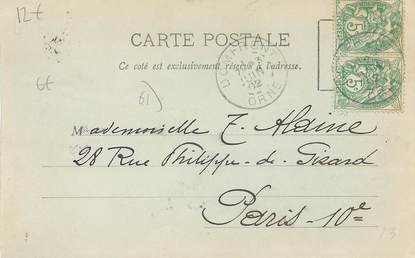 12+
6t
CARTE POSTALE
Ce côté est exclusivement réservé à l'adresse.
61)
DOMFRONT
JUIN
02
ORNE
5
5
Mademoiselle T. Alaine
28 Rue Philippe-de-Girard
Paris-10e